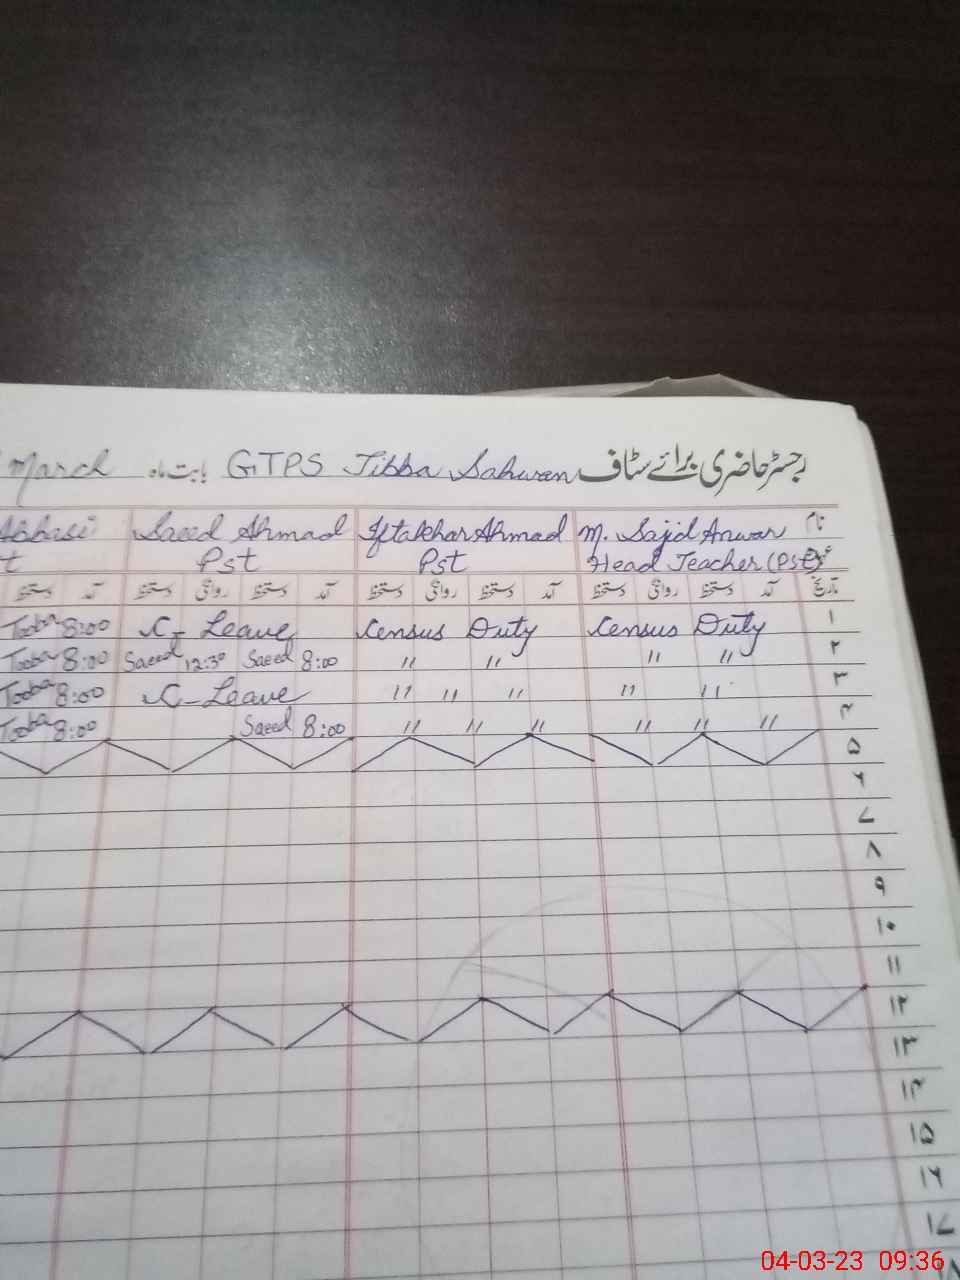 رجسٹر حاضری برائے سٹاف GTPS Tibba Sahwan بابت ماہ March
نام M. Sajid Anwar Iftakhar Ahmad Saeed Ahmad Abbasi
Head Teacher (Pst) Pst Pst t
تاریخ آمد دستخط روانگی دستخط آمد دستخط روانگی دستخط آمد دستخط روانگی دستخط آمد دستخط
۱ Census Duty Census Duty C- Leave Tooba 8:00
۲ " " " " Saeed 8:00 Saeed 12:30 Tooba 8:00
۳ " " " " " C-Leave Tooba 8:00
۴ " " " " " " Saeed 8:00 Tooba 8:00
۵
۶
۷
۸
۹
۱۰
۱۱
۱۲
۱۳
۱۴
۱۵
۱۶
۱۷
۱۸
04-03-23 09:36